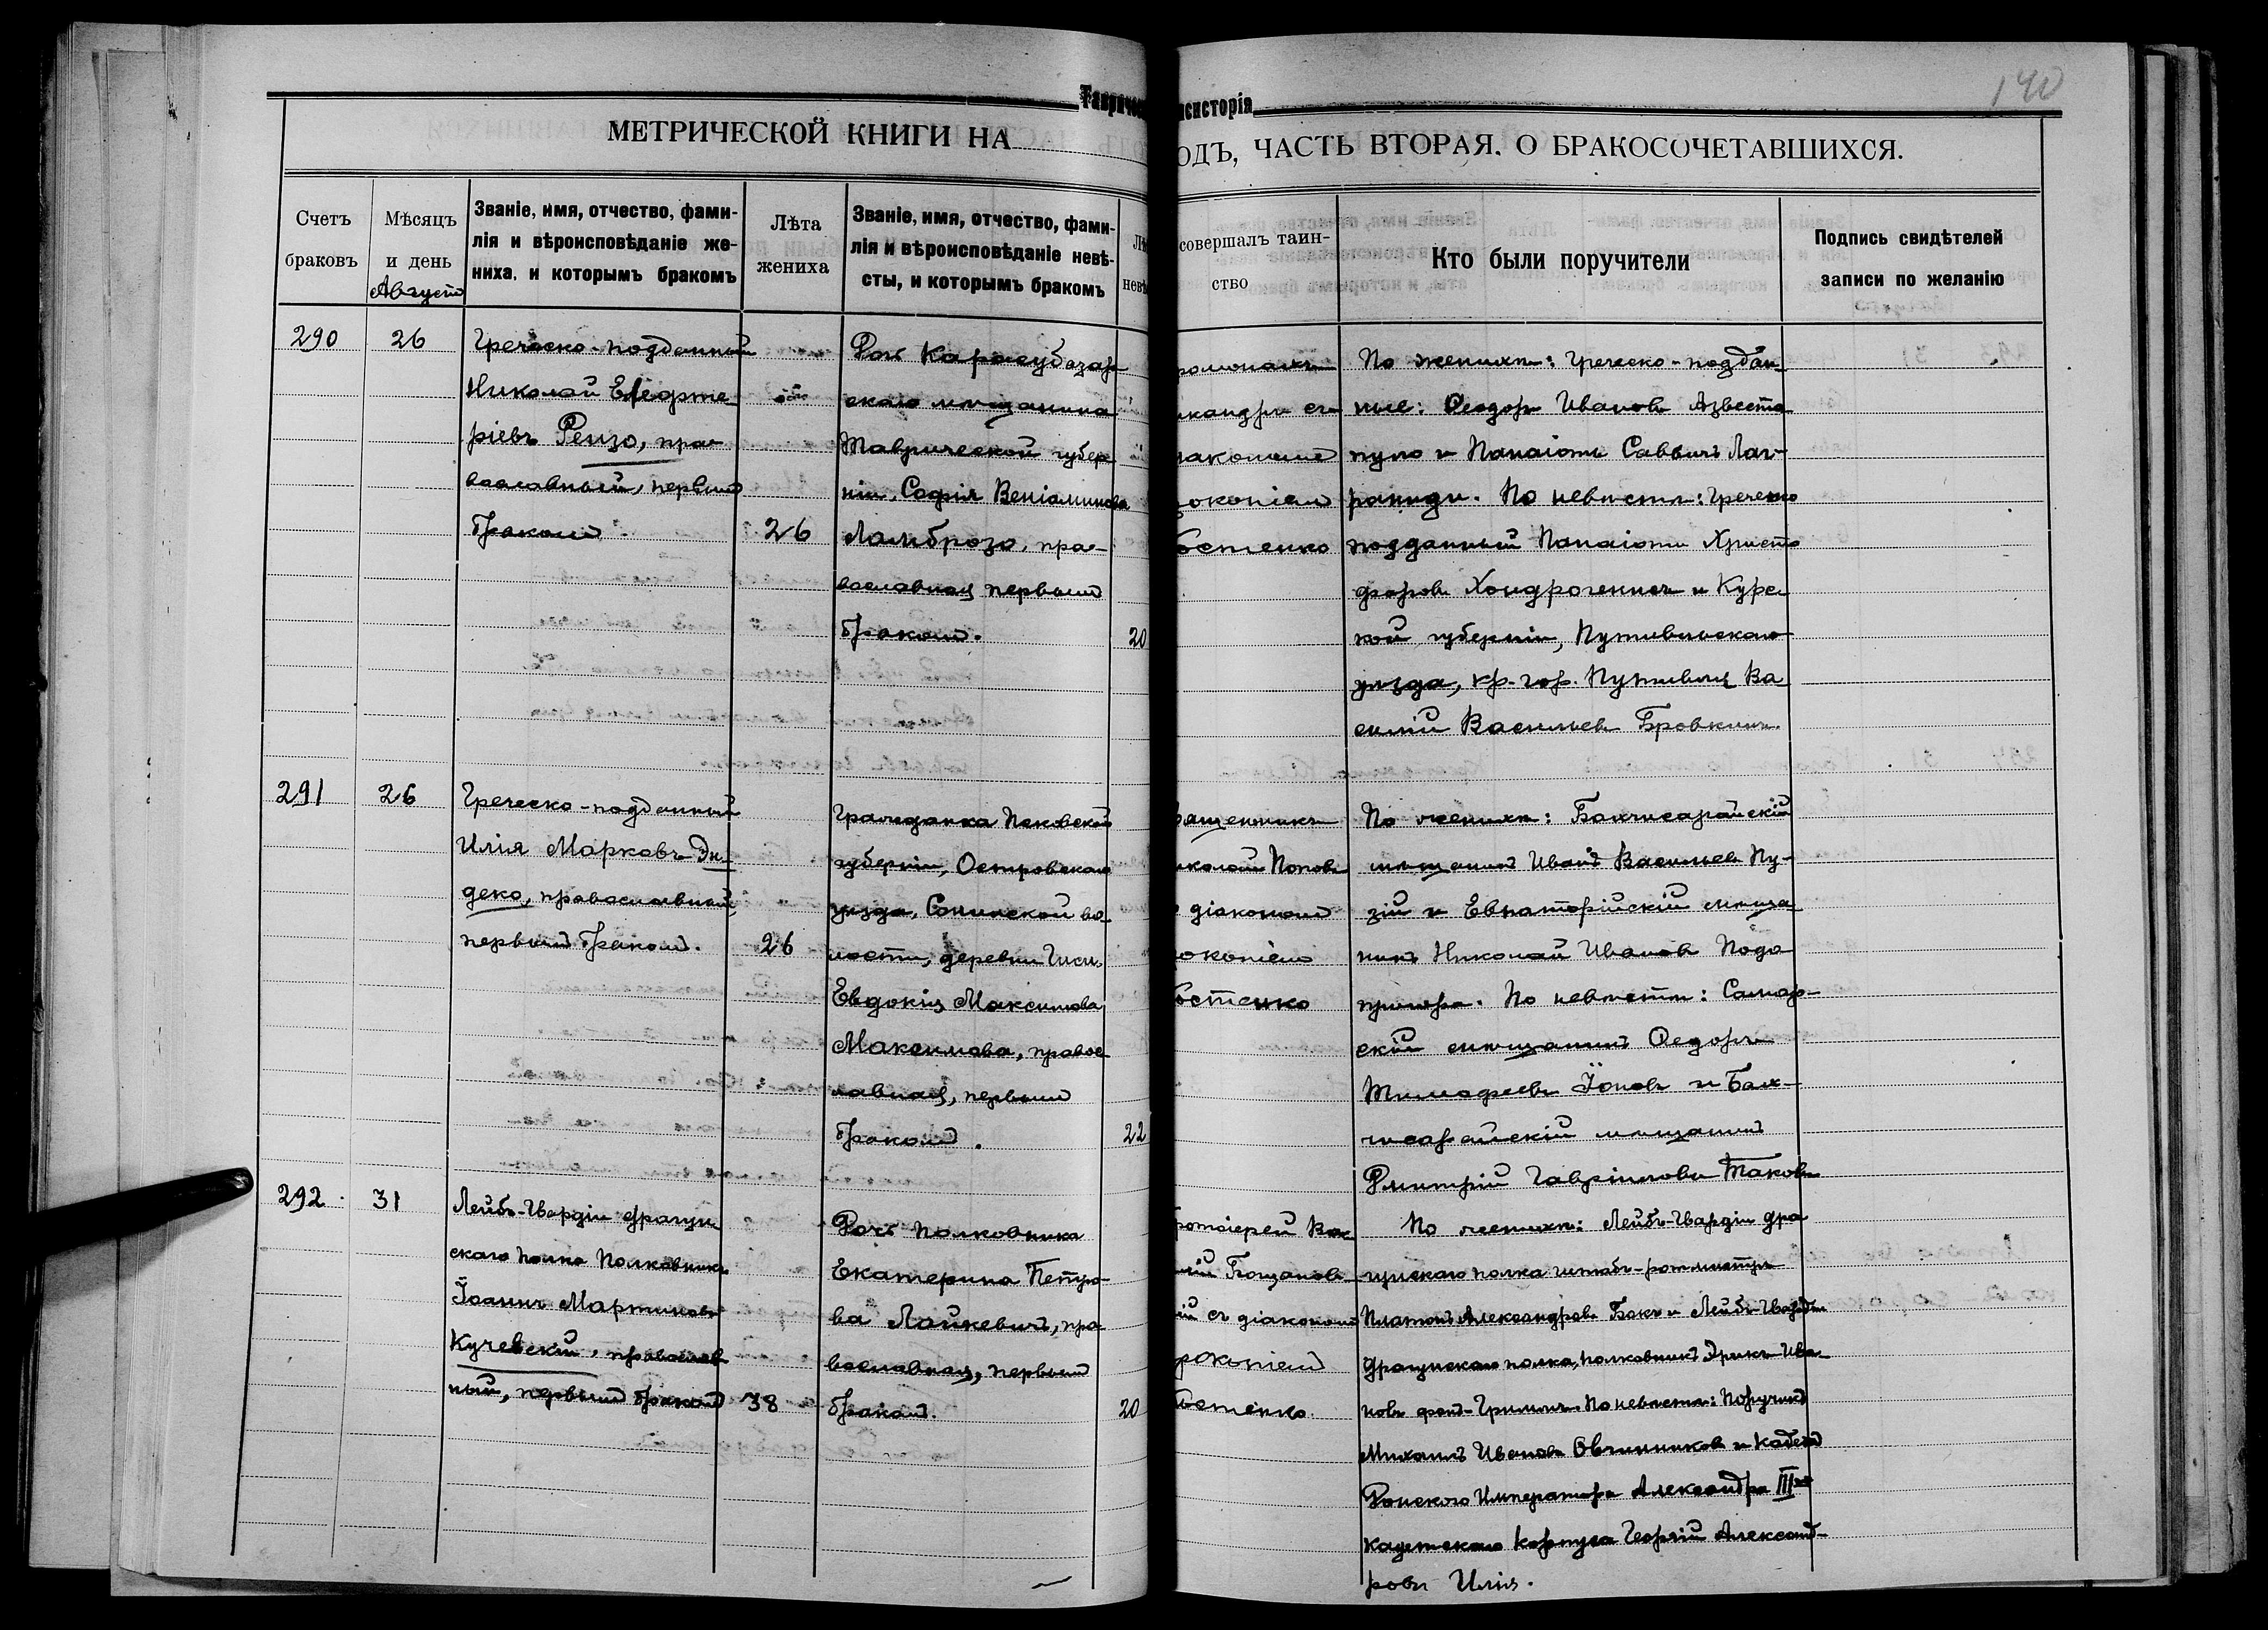 140
Таврическ
нсисторія
МЕТРИЧЕСКОЙ КНИГИ НА
ОДЪ, ЧАСТЬ ВТОРАЯ. О БРАКОСОЧЕТАВШИХСЯ.
Счетъ
браковъ
Мѣсяцъ
и день
Августъ
Званіе, имя, отчество, фами-
лія и вѣроисповѣданіе же-
ниха, и которымъ бракомъ
Лѣта
жениха
Званіе, имя, отчество, фами-
лія и вѣроисповѣданіе невѣ-
сты, и которымъ бракомъ
Лѣ
невѣ
совершалъ таин-
ство
Кто были поручители
Подпись свидѣтелей
записи по желанію
290
26
Греческо-подданный
Николай Елефте
ріевъ Рензо, пра-
вославный, первымъ
бракомъ.
26
Дочь Карасубазар
скаго мѣщанина
Таврической губер
ніи, Софія Веніаминова
Ламброзо, пра-
вославная первымъ
бракомъ.
20
ромонахъ
икандръ съ
іакономъ
рокопіемъ
бстенко
По женихѣ: греческо-поддан
ные: Ѳеодоръ Ивановъ Азвесто
пуло и Панаіотъ Саввичъ Лаг-
раниди. По невѣстѣ: греческо
подданный Панаіотъ Христо
форовъ Хондрогенисъ и Курс
кой губерніи, Путивльскаго
уѣзда, кр. гор. Путивля Ва
силій Васильевъ Бровкинъ.
291
26
Греческо-подданный
Илія Марковъ Эн
деко, православный,
первымъ бракомъ.
26
Гражданка Псковской
губерніи, Островскаго
уѣзда, Сонинской во
лости, деревни
Евдокія Максимова
Максимова, правос
лавная, первымъ
бракомъ.
22
вященникъ
иколай Поповъ
діакономъ
рокопіемъ
бстенко
По женихѣ: Бахчисарайскій
мѣщанинъ Иванъ Васильевъ Пу-
зій и Евпаторійскій мѣща
нинъ Николай Ивановъ Подо
пригора. По невѣстѣ: Самар-
скій мѣщанинъ Ѳедоръ
Тимофеевъ Іоновъ и Бах-
чисарайскій мѣщанинъ
Дмитрій Гавріиловъ Таковъ
292
31
Лейбъ-Гвардіи Драгун
скаго полка Полковникъ
Іоаннъ Мартиновъ
Кучевскій, православ
ный, первымъ бракомъ
38
Дочь полковника
Екатерина Петро-
ва Лайкевичъ, пра
вославная, первымъ
бракомъ.
20
ротоіерей Вас
илій Бощанов
скій съ діакономъ
рокопіемъ
бстенко.
По женихѣ: Лейбъ-Гвардіи Дра
гунскаго полка штабъ-ротмистръ
Платонъ Александровъ Бокъ и Лейбъ-Гвардіи
Драгунскаго полка, полковникъ Эрикъ Ива
новъ фонъ-Гриммъ. По невѣстѣ: Поручикъ
Михаилъ Ивановъ Овчинниковъ и кадетъ
Донского Императора Александра III го
кадетскаго корпуса Георгій Александ-
ровъ Илія.